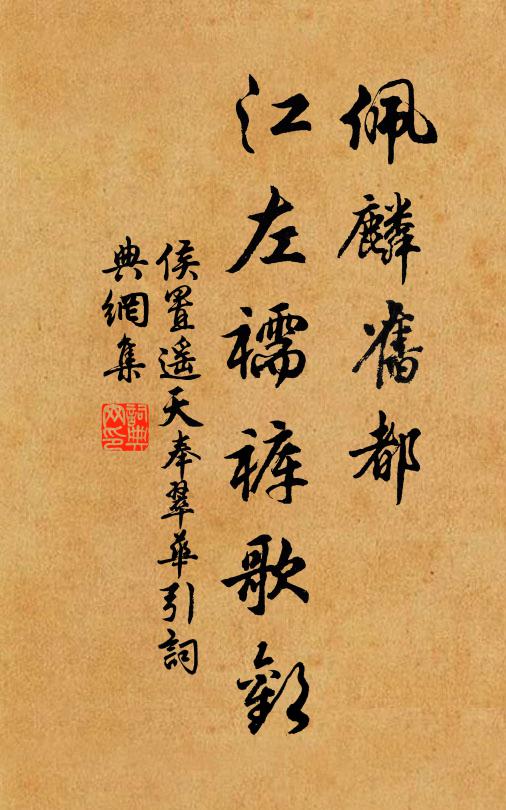 佩麟舊都
江左襦裤歌歡
侯置遥天奉翠華引詞
典網集
詞典網印